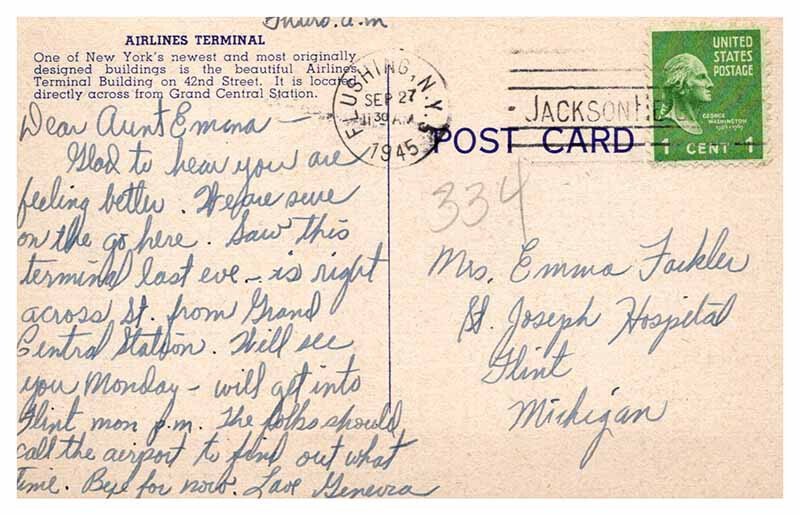 Thurs. a.m
AIRLINES TERMINAL
One of New York's newest and most originally
designed buildings is the beautiful Airlines
Terminal Building on 42nd Street. It is located
directly across from Grand Central Station.
Dear Aunt Emma —
Glad to hear you are
feeling better. We are sure
on the go here. Saw this
terminal last eve – is right
across St. from Grand
Central Station. Will see
you Monday – will get into
Flint mon p.m. The folks should
call the airport to find out what
time. Bye for now. Love Genevra
FLUSHING, N.Y.
SEP 27
11 30 AM
1945
JACKSON
UNITED
STATES
POSTAGE
GEORGE
WASHINGTON
1 CENT 1
POST CARD
334
Mrs. Emma Fackler
St. Joseph Hospital
Flint
Michigan